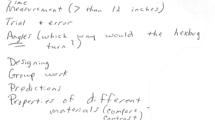 time
Measurement (> than 12 inches)
Trial + error
Angles (which way would the hexbug
turn?)
Designing
Group work
Predictions
Properties of different
materials (compare -
contrast)